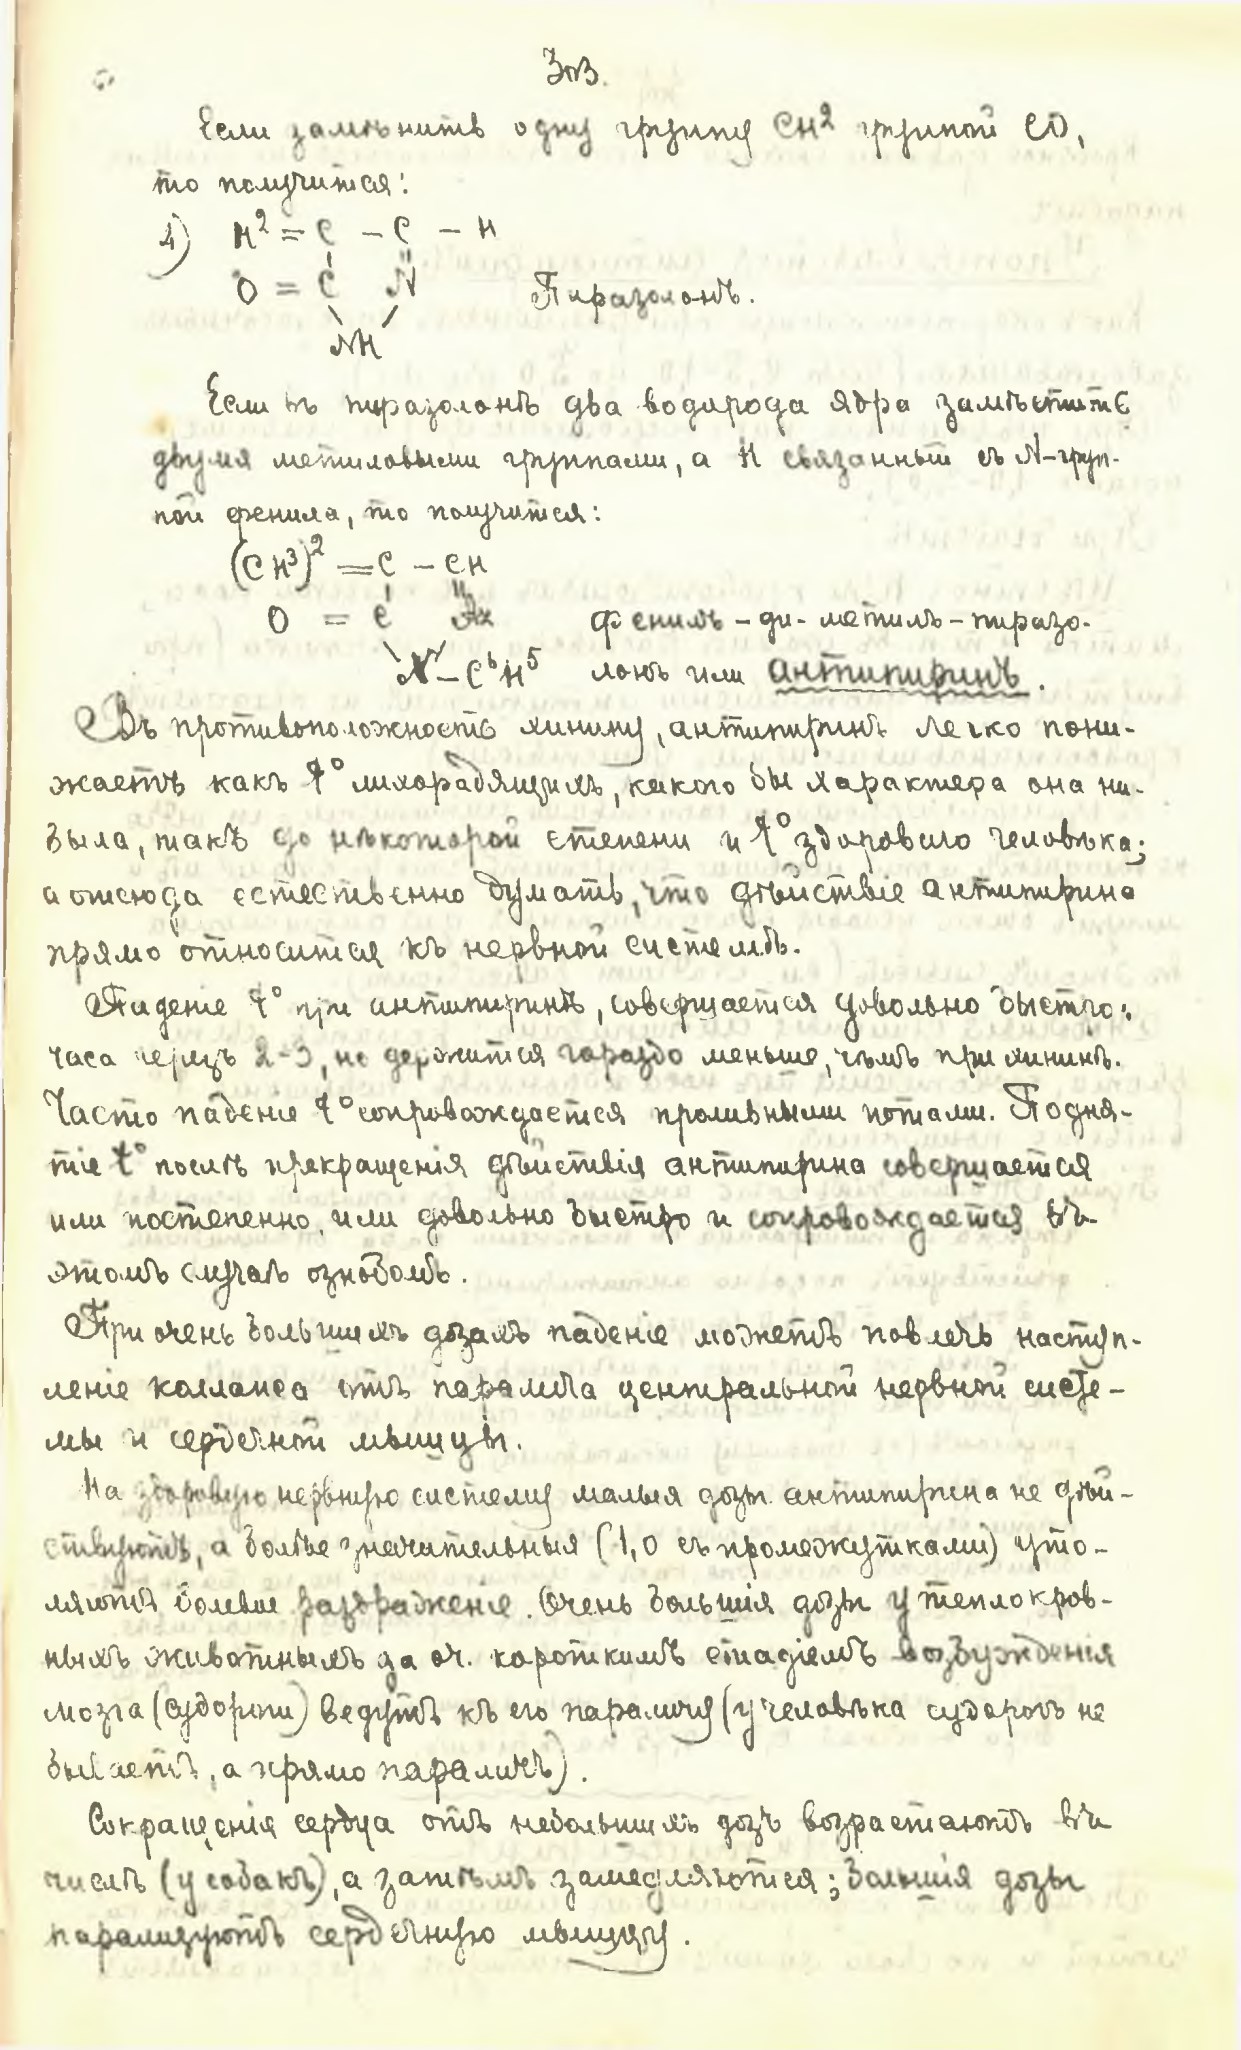 Если замѣнить одну группу CH2 групой CO,
то получится:
4) H2 = C – C – H
O = C N Пиразолонъ.
NH
Если въ пиразолонѣ два водорода ядра замѣстите
двумя метиловыми группами, а H связанный съ N-груп-
пой фенила, то получится:
(CH3)2 = C – CH
O = C Az Фенилъ-ди-метилъ-пиразо-
N – C6H5 лонъ или антипиринъ.
Въ противоположность хинину, антипиринъ легко пони-
жаетъ какъ t° лихорадящихъ, какого бы характера она ни-
была, такъ до нѣкоторой степени и t° здороваго человѣка;
а отсюда естественно думать, что дѣйствіе антипирина
прямо относится къ нервной системѣ.
Падение t° при антипиринѣ, совершается довольно быстро:
часа черезъ 2-3, но держится гораздо меньше, чѣмъ при хининѣ.
Часто паденіе t° сопровождается проливными потами. Подня-
тіе t° послѣ прекращенія дѣйствія антипирина совершается
или постепенно, или довольно быстро и сопровождается въ
этомъ случаѣ ознобомъ.
При очень большихъ дозахъ паденіе можетъ повлечь наступ-
леніе коллапса отъ паралича центральной нервной систе-
мы и сердечной мышцы.
На здоровую нервную систему малыя дозы антипирина не дѣй-
ствуютъ, а болѣе значительныя (1,0 съ промежутками) уто-
ляютъ болевые раздраженіе. Очень большія дозы у теплокров-
ныхъ животныхъ за оч. короткимъ стадіемъ возбужденія
мозга (судороги) ведутъ къ его параличу (у человѣка судорогъ не
бываетъ, а прямо параличъ).
Сокращенія сердца отъ небольшихъ дозъ возрастаютъ въ
числѣ (у собакъ), а затѣмъ замедляются; большія дозы
парализуютъ сердечную мышцу.